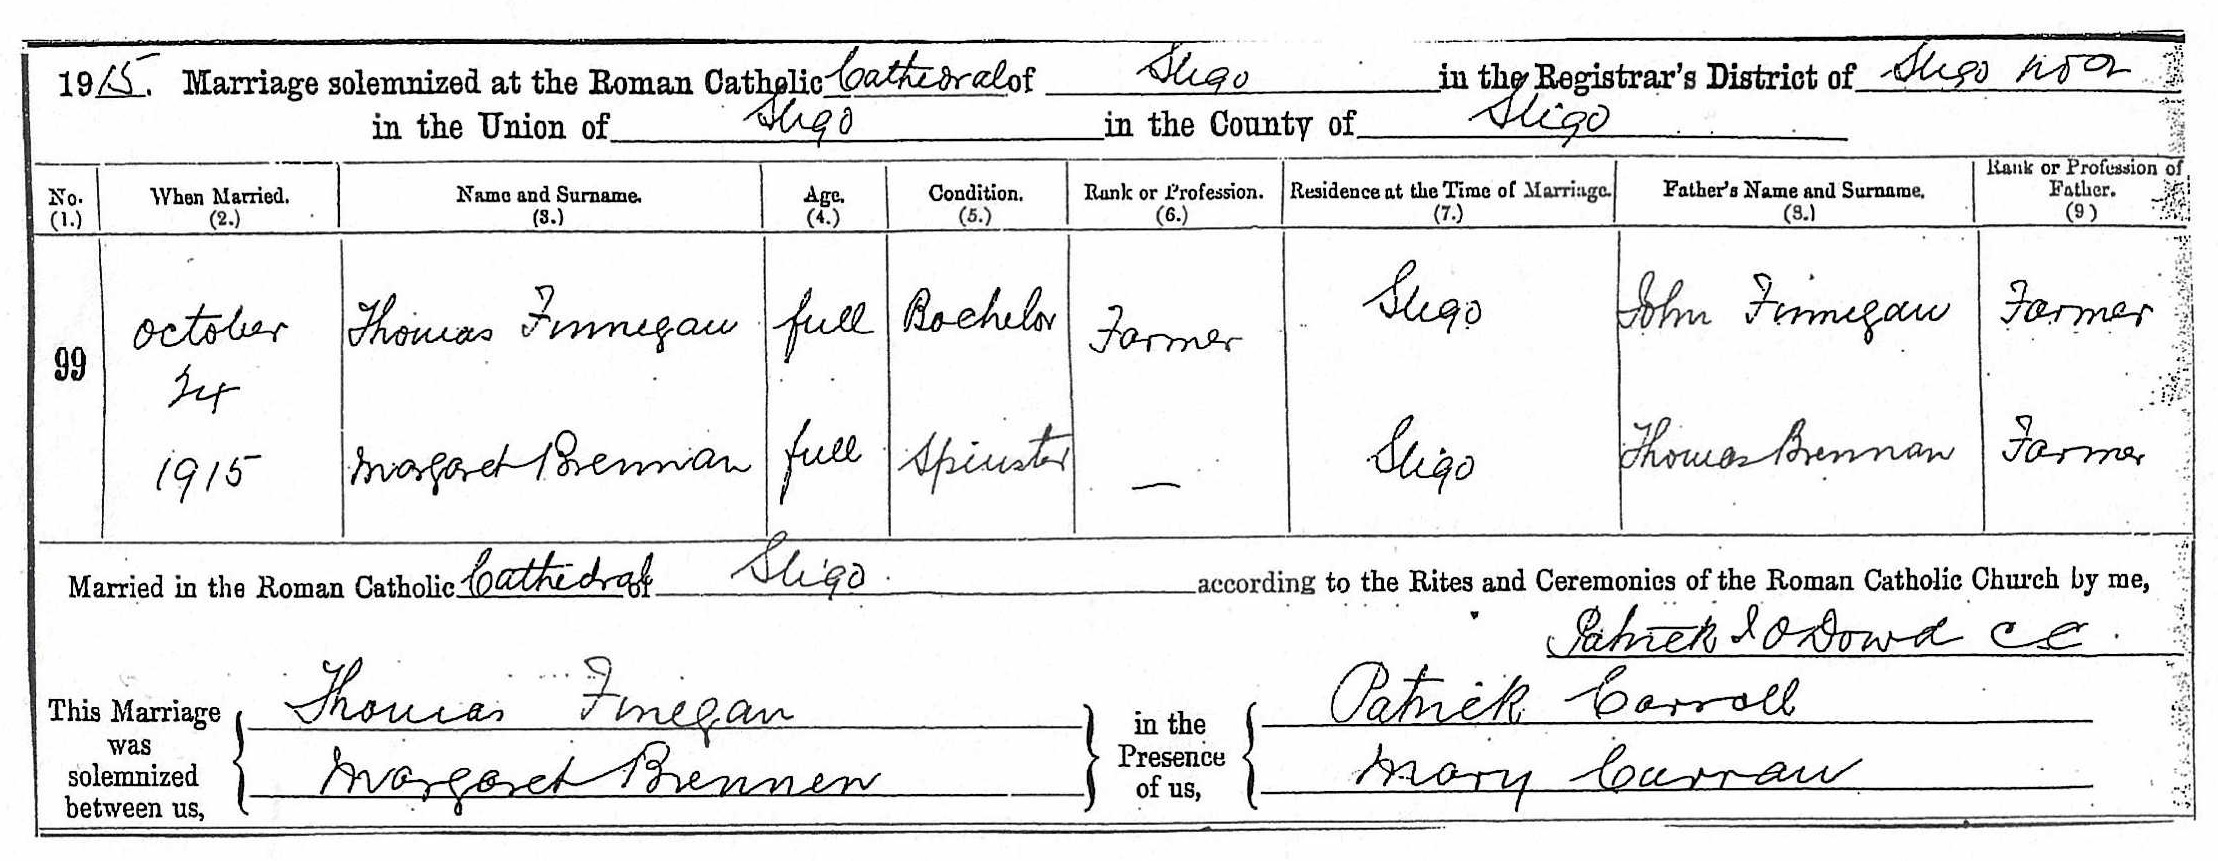 1915. Marriage solemnized at the Roman Catholic Cathedral of Sligo in the Registrar's District of Sligo No 2
in the Union of Sligo in the County of Sligo
No. (1.) When Married. (2.) Name and Surname. (3.) Age. (4.) Condition. (5.) Rank or Profession. (6.) Residence at the Time of Marriage. (7.) Father's Name and Surname. (8.) Rank or Profession of Father. (9)
99 October 24 1915
Thomas Finnegan full Bachelor Farmer Sligo John Finnegan Farmer
Margaret Brennan full Spinster — Sligo Thomas Brennan Farmer
Married in the Roman Catholic Cathedral of Sligo according to the Rites and Ceremonies of the Roman Catholic Church by me,
Patrick J O Dowd CC
This Marriage was solemnized between us, Thomas Finegan
Margaret Brennen
in the Presence of us, Patrick Carroll
Mary Curran